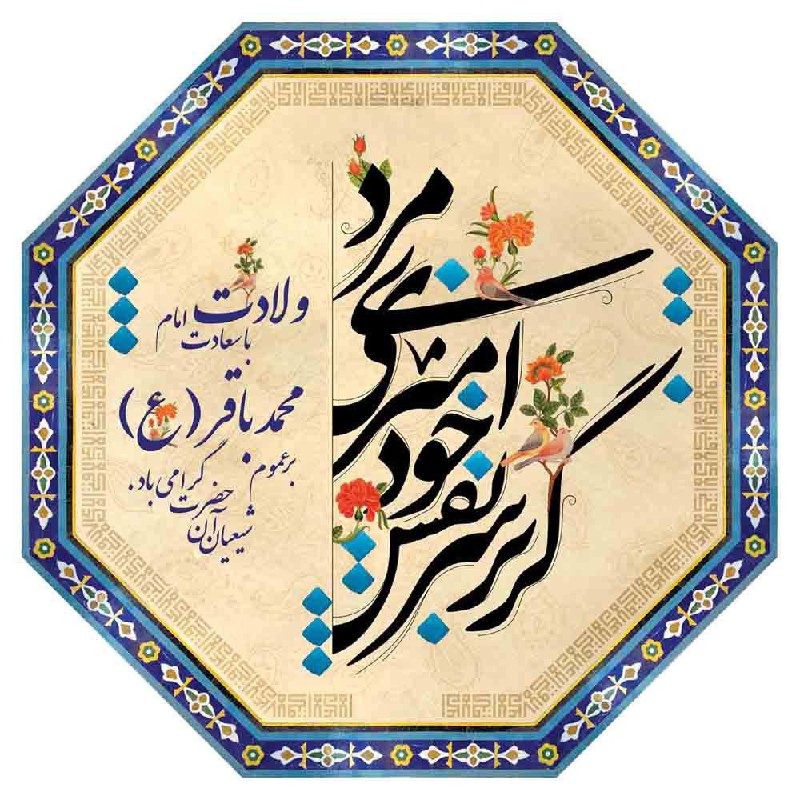 گر بر سر نفس
خود امیری
مردی
ولادت باسعادت امام
محمد باقر (ع)
بر عموم
شیعیان آن حضرت گرامی باد.